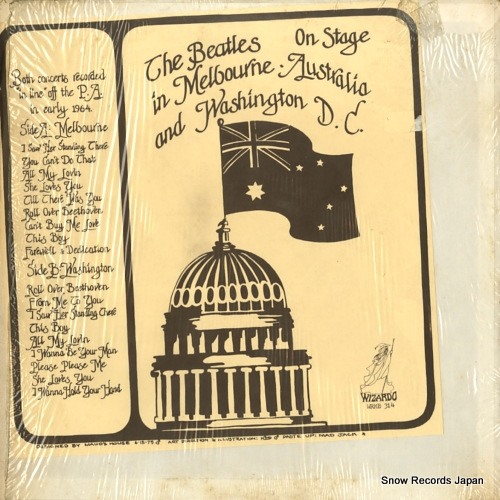 The Beatles On Stage
in Melbourne Australia
and Washington D.C.
Both concerts recorded
"in line" off the P.A.
in early 1964.
Side A: Melbourne
I Saw Her Standing There
You Can't Do That
All My Lovin
She Loves You
Till There Was You
Roll Over Beethoven
Can't Buy Me Love
This Boy
Farewell & Dedication
Side B: Washington
Roll Over Beethoven
From Me To You
I Saw Her Standing There
This Boy
All My Lovin
I Wanna Be Your Man
Please Please Me
She Loves You
I Wanna Hold Your Hand
WIZARDO
DESIGNED BY HOUSE ART DIRECTION & ILLUSTRATION: PASTE UP: MAD JACK
Snow Records Japan